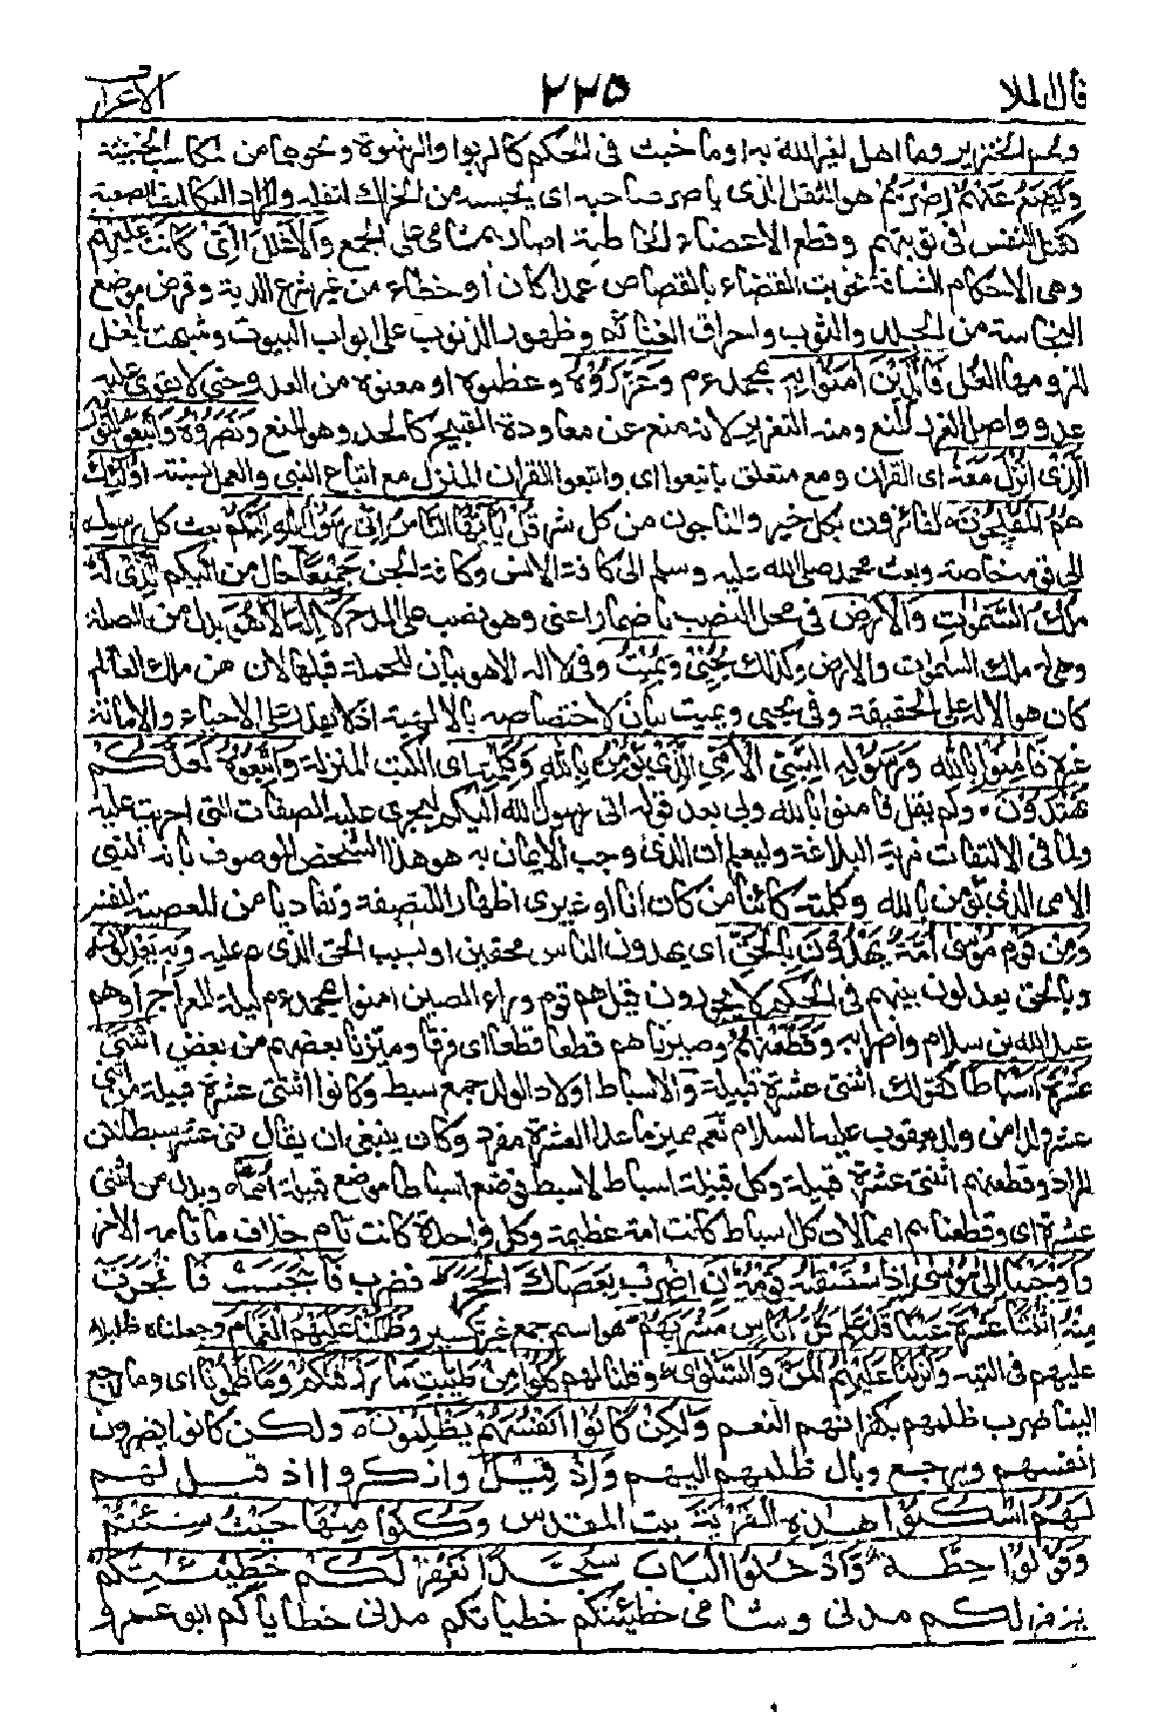 قال الملا ٢٢٥ الاعراف
ولحم الخنزير وما اهل لغير الله به او ما خبث فى الحكم كالربوا والرشوة ونحوهما من المكاسب الخبيثة
وَيَضَعُ عَنْهُمْ اِصْرَهُمْ هو الثقل الذى ياصر صاحبه اى يحبسه من الحراك لثقله والمراد التكاليف الصعبة
كقتل النفس فى توبتهم وقطع الاعضاء الخاطئة اصارهم شامى على الجمع وَالْاَغْلٰلَ الَّتِىْ كَانَتْ عَلَيْهِمْ
وهى الاحكام الشاقة نحو بت القضاء بالقصاص عمدا كان او خطاء من غير شرع الدية وقرض موضع
النجاسة من الجلد والثوب واحراق الغنائم وظهور الذنوب على ابواب البيوت وشبهت بالغل
للزومها لزوم الغل فَالَّذِيْنَ اٰمَنُوْا بِهٖ بمحمد ءم وَعَزَّرُوْهُ وعظموه او منعوه من العدو حتى لا يقوى عليه
عدو واصل العزر المنع ومنه التعزير لانه منع عن معاودة القبيح كالحد وهو المنع وَنَصَرُوْهُ وَاتَّبَعُوا النُّوْرَ
الَّذِىْ اُنْزِلَ مَعَهٗ اى القران ومع متعلق باتبعوا اى واتبعوا القران المنزل مع اتباع النبى والعمل بسنته اُولٰٓئِكَ
هُمُ الْمُفْلِحُوْنَ الفائزون بكل خير والناجون من كل شر قُلْ يٰٓاَيُّهَا النَّاسُ اِنِّىْ رَسُوْلُ اللهِ اِلَيْكُمْ بعث كل رسول
الى قومه خاصة وبعث محمد صلى الله عليه وسلم الى كافة الانس وكافة الجن جَمِيْعًا حال من اليكم الَّذِىْ لَهٗ
مُلْكُ السَّمٰوٰتِ وَالْاَرْضِ فى محل النصب باضمار اعنى وهو نصب على المدح لَآ اِلٰهَ اِلَّا هُوَ بدل من الصلة
وهى له ملك السموات والارض وكذلك يُحْىٖ وَيُمِيْتُ وفى لا اله الا هو بيان للجملة قبلها لان من ملك العالم
كان هو الاله على الحقيقة وفى يحيى ويميت بيان لاختصاصه بالالهية اذ لا يقدر على الاحياء والاماتة
غيره فَاٰمِنُوْا بِاللهِ وَرَسُوْلِهِ النَّبِىِّ الْاُمِّىِّ الَّذِىْ يُؤْمِنُ بِاللهِ وَكَلِمٰتِهٖ اى الكتب المنزلة وَاتَّبِعُوْهُ لَعَلَّكُمْ
تَهْتَدُوْنَ ولم يقل فامنوا بالله وبى بعد قوله انى رسول الله اليكم ليجرى عليه الصفات التى اجريت عليه
ولما فى الالتفات مزية البلاغة وليعلم ان الذى وجب الايمان به هو هذا الشخص الموصوف بانه النبى
الامى الذى يؤمن بالله وكلمته كائنا من كان انا او غيرى اظهارا للنصفة وتفاديا من العصبية لنفسه
وَمِنْ قَوْمِ مُوْسٰٓى اُمَّةٌ يَّهْدُوْنَ بِالْحَقِّ اى يهدون الناس محقين او بسبب الحق الذى هم عليه وَبِهٖ يَعْدِلُوْنَ
وبالحق يعدلون بينهم فى الحكم لا يجورون قيل هم قوم وراء الصين امنوا بمحمد ءم ليلة المعراج او هم
عبد الله بن سلام واضرابه وَقَطَّعْنٰهُمُ وصيرناهم قطعا قطعا اى فرقا وميزنا بعضهم من بعض اثْنَتَىْ
عَشْرَةَ اَسْبَاطًا كقولك اثنتى عشرة قبيلة والاسباط اولاد الولد جمع سبط وكانوا اثنتى عشرة قبيلة من اثنى
عشر ولدا من ولد يعقوب عليه السلام نعم مميز ما عدا العشرة مفرد وكان ينبغى ان يقال اثنى عشر سبطا لكن
المراد وقطعنهم اثنتى عشرة قبيلة وكل قبيلة اسباط لا سبط فوضع اسباطا موضع قبيلة اُمَمًا بدل من اثنتى
عشرة اى وقطعناهم امما لان كل اسباط كانت امة عظيمة وكل واحدة كانت تام خلاف ما تامه الاخر
وَاَوْحَيْنَآ اِلٰى مُوْسٰٓى اِذِ اسْتَسْقٰهُ قَوْمُهٗٓ اَنِ اضْرِبْ بِّعَصَاكَ الْحَجَرَ فضرب فَانْۢبَجَسَتْ فانفجرت
مِنْهُ اثْنَتَا عَشْرَةَ عَيْنًا قَدْ عَلِمَ كُلُّ اُنَاسٍ مَّشْرَبَهُمْ هو اسم جمع غير تكسير وَظَلَّلْنَا عَلَيْهِمُ الْغَمَامَ وجعلناه ظليلا
عليهم فى التيه وَاَنْزَلْنَا عَلَيْهِمُ الْمَنَّ وَالسَّلْوٰى وقلنا لهم كُلُوْا مِنْ طَيِّبٰتِ مَا رَزَقْنٰكُمْ وَمَا ظَلَمُوْنَا اى وما رجع
الينا ضرر ظلمهم بكفرانهم النعم وَلٰكِنْ كَانُوْٓا اَنْفُسَهُمْ يَظْلِمُوْنَ ولكن كانوا يضرون
انفسهم ويرجع وبال ظلمهم اليهم وَاِذْ قِيْلَ واذكروا اذ قيل لهم
لَهُمُ اسْكُنُوْا هٰذِهِ الْقَرْيَةَ بيت المقدس وَكُلُوْا مِنْهَا حَيْثُ شِئْتُمْ
وَقُوْلُوْا حِطَّةٌ وَّادْخُلُوا الْبَابَ سُجَّدًا نَّغْفِرْ لَكُمْ خَطِيْٓـٰٔتِكُمْ
تغفر لكم مدنى وشامى خطيئتكم خطياتكم مدنى خطاياكم ابو عمرو